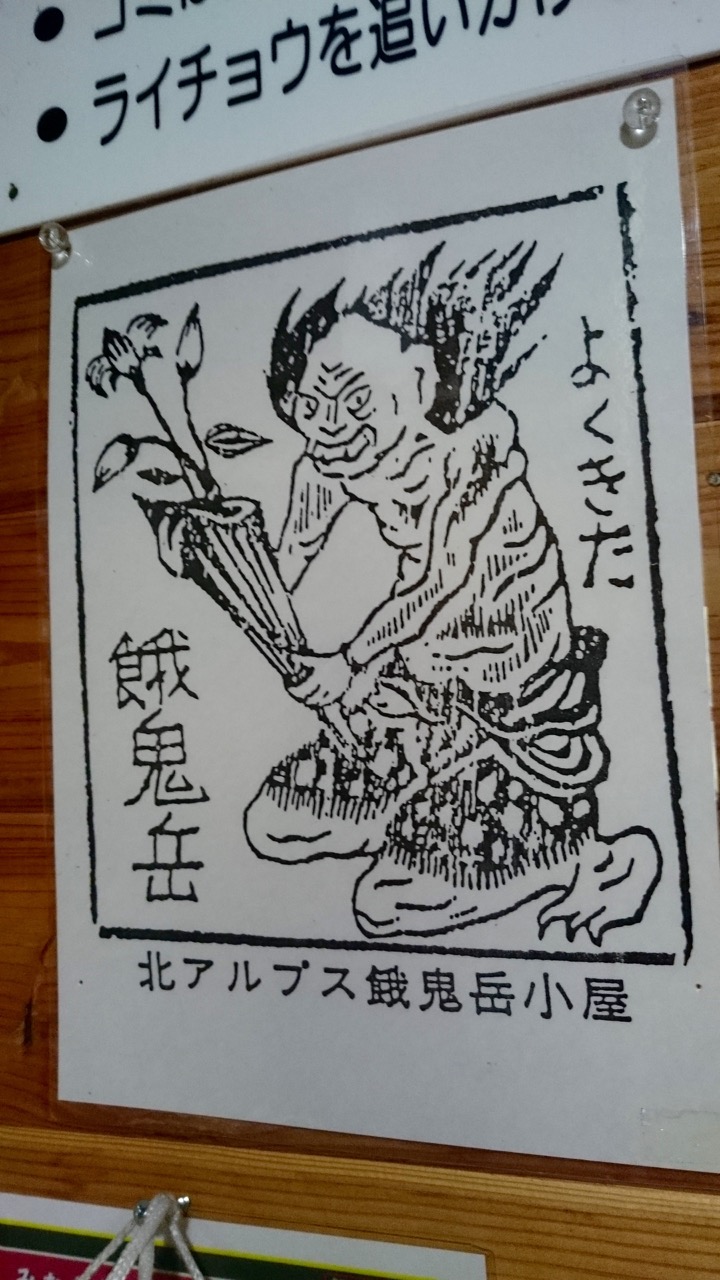 ライチョウを追いか
よくきた
餓鬼岳
北アルプス餓鬼岳小屋